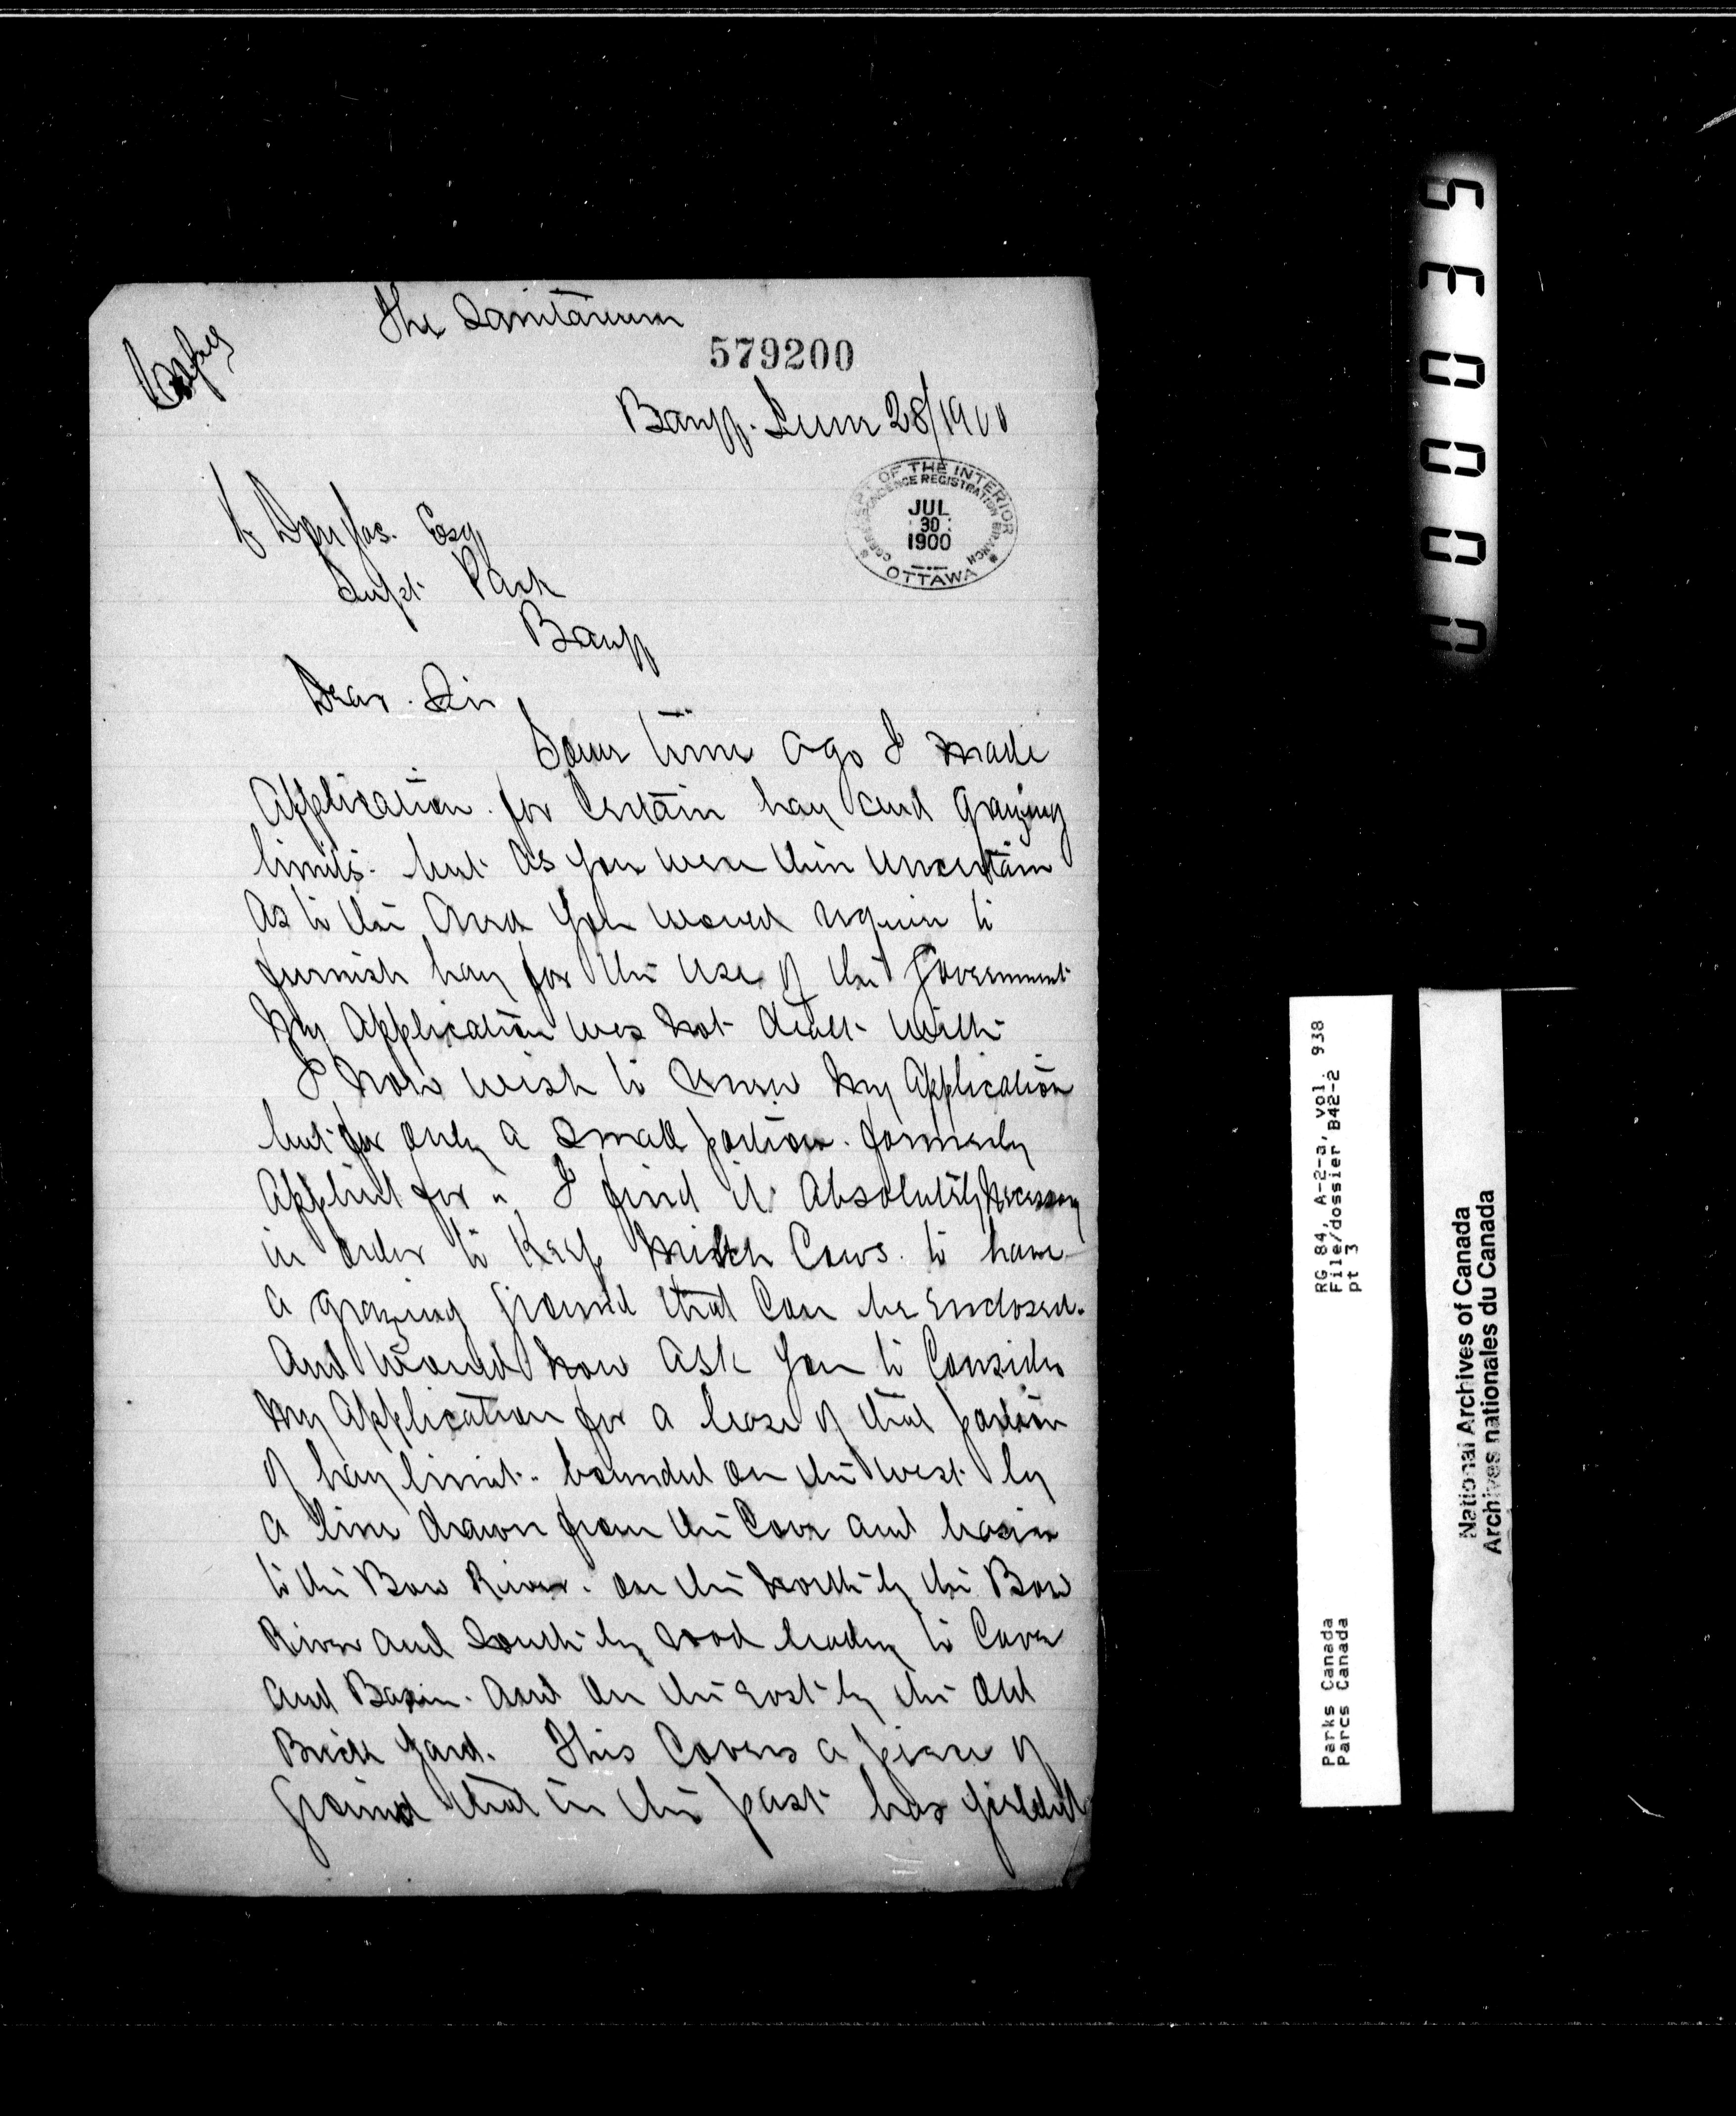 The Sanitarium
Copy
579200
Banff. June 28/1900
DEPT OF THE INTERIOR
CORRESPONDENCE REGISTRATION BRANCH
JUL
30
1900
OTTAWA
Douglas. Esq
Supt Park
Banff
Dear. Sir
Some time ago I made
Application. for Certain hay and grazing
limits. but as you were then uncertain
As to the Area you would require to
furnish hay for the use of the Government
My Application was not dealt with
I now wish to renew my Application
but for only a small portion. formerly
Applied for. I find it Absolutely necessary
in order to Keep milch Cows. to have
a grazing ground that Can be Enclosed.
And would now ask you to Consider
my Application for a lease of that portion
of hay limit. bounded on the west by
a line drawn from the Cave and basin
to the Bow River. on the north by the Bow
River and South by road leading to Cave
and Basin. And on the East by the old
Brick yard. This Covers a piece of
ground that in the past has yielded
00005
RG 84, A-2-a, vol. 938
File/dossier B42-2
pt 3
Parks Canada
Parcs Canada
National Archives of Canada
Archives nationales du Canada